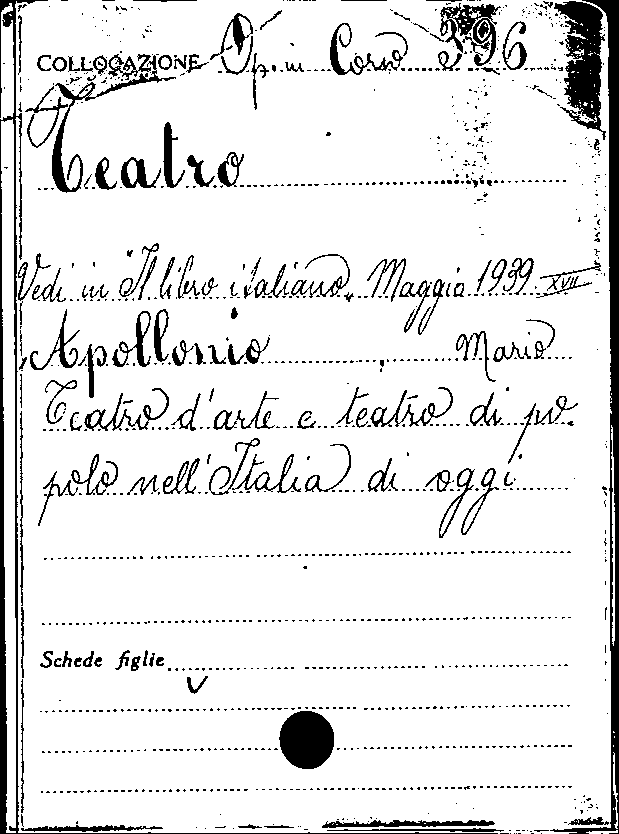 COLLOCAZIONE Op. in Corso 396
Teatro
Vedi in "Il libro italiano„ Maggio 1939 XVII
Apollonio, Mario
Teatro d'arte e teatro di po-
polo nell'Italia di oggi
Schede figlie